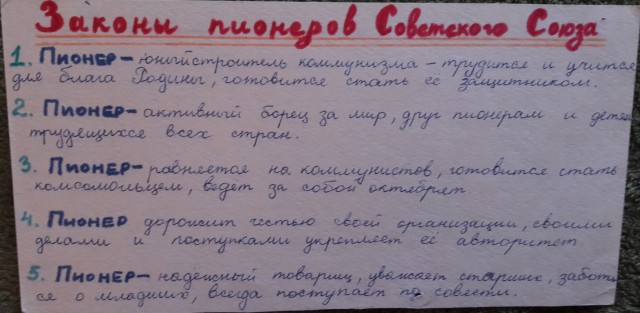 Законы пионеров Советского Союза
1. Пионер – юный строитель коммунизма – трудится и учится
для блага Родины, готовится стать её защитником.
2. Пионер – активный борец за мир, друг пионерам и детям
трудящихся всех стран.
3. Пионер – равняется на коммунистов, готовится стать
комсомольцем, ведет за собой октябрят
4. Пионер дорожит честью своей организации, своими
делами и поступками укрепляет её авторитет
5. Пионер – надежный товарищ, уважает старших, заботи
ся о младших, всегда поступает по совести.